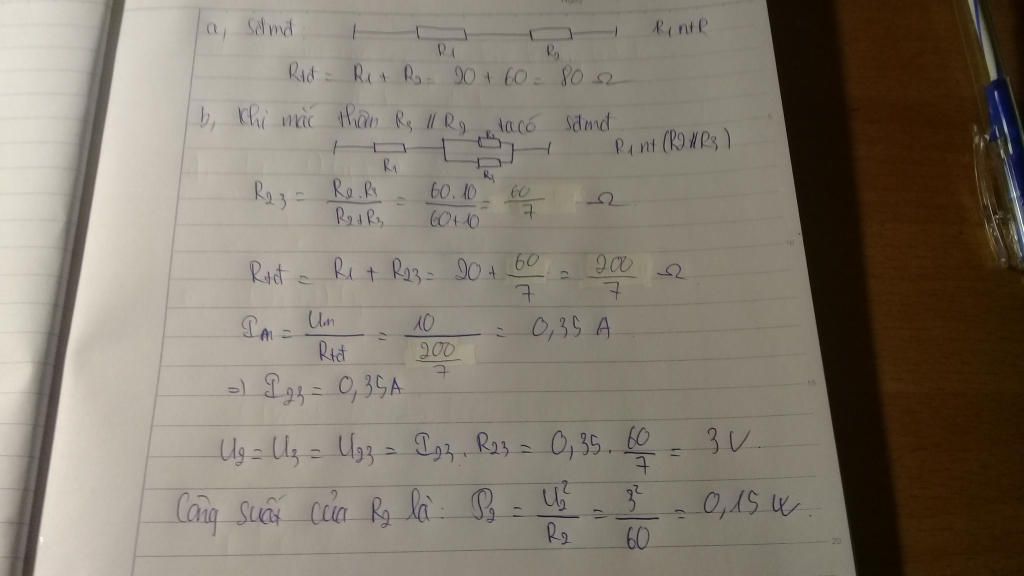 a, Sđmđ R1 R2 R1 nt R
Rtđ = R1 + R2 = 20 + 60 = 80 Ω
b, Khi mắc thêm R3 // R2 ta có sđmđ
R1 R2 R3 R1 nt (R2//R3)
R23 = R2.R1 / R2+R3 = 60.10 / 60+10 = 60/7 Ω
Rtđ = R1 + R23 = 20 + 60/7 = 200/7 Ω
Im = Um / Rtđ = 10 / 200/7 = 0,35 A
=) I23 = 0,35A
U2 = U3 = U23 = I23 . R23 = 0,35 . 60/7 = 3 V.
Công suất của R2 là: P2 = U2² / R2 = 3² / 60 = 0,15 W.